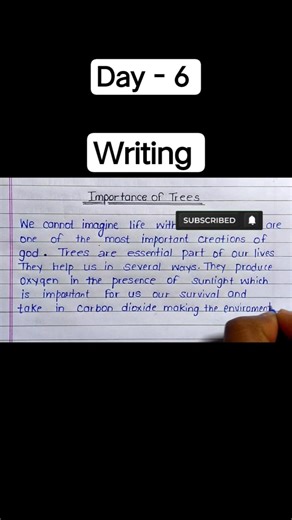 Day - 6
Writing
Importance of Trees
We cannot imagine life with SUBSCRIBED are
one of the most important creations of
god. Trees are essential part of our lives
They help us in several ways. They produce
oxygen in the presence of sunlight which
is important For us our survival and
take in carbon dioxide making the enviroment